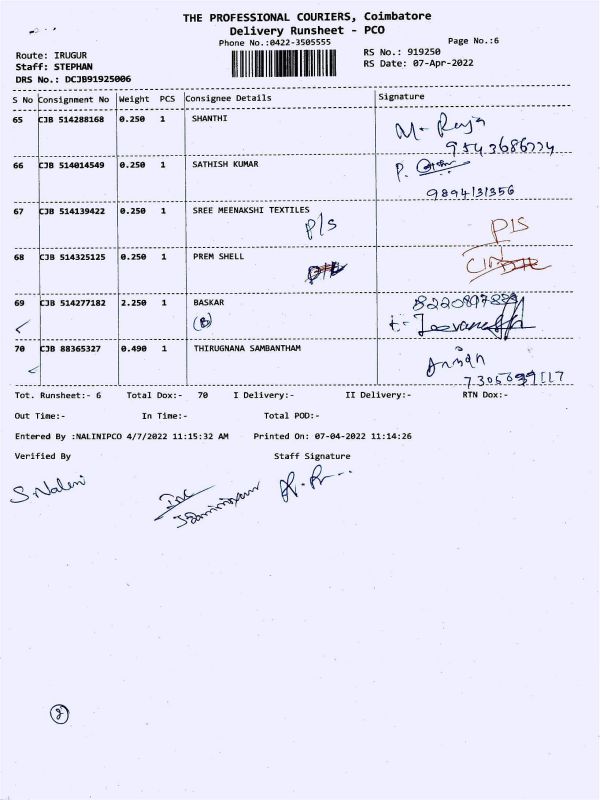 THE PROFESSIONAL COURIERS, Coimbatore
Delivery Runsheet - PCO
Phone No.:0422-3505555
Page No.:6
Route: IRUGUR
RS No.: 919250
Staff: STEPHAN
RS Date: 07-Apr-2022
DRS No.: DCJB91925006
S No Consignment No Weight PCS Consignee Details Signature
65 CJB 514288168 0.250 1 SHANTHI M. Raja
66 CJB 514014549 0.250 1 SATHISH KUMAR P.
9894131356
67 CJB 514139422 0.250 1 SREE MEENAKSHI TEXTILES
P/S P/S
68 CJB 514325125 0.250 1 PREM SHELL
69 CJB 514277182 2.250 1 BASKAR
(B)
70 CJB 88365327 0.490 1 THIRUGNANA SAMBANTHAM
Tot. Runsheet:- 6 Total Dox:- 70 I Delivery:- II Delivery:- RTN Dox:-
Out Time:- In Time:- Total POD:-
Entered By :NALINIPCO 4/7/2022 11:15:32 AM Printed On: 07-04-2022 11:14:26
Verified By Staff Signature
S. Nalini